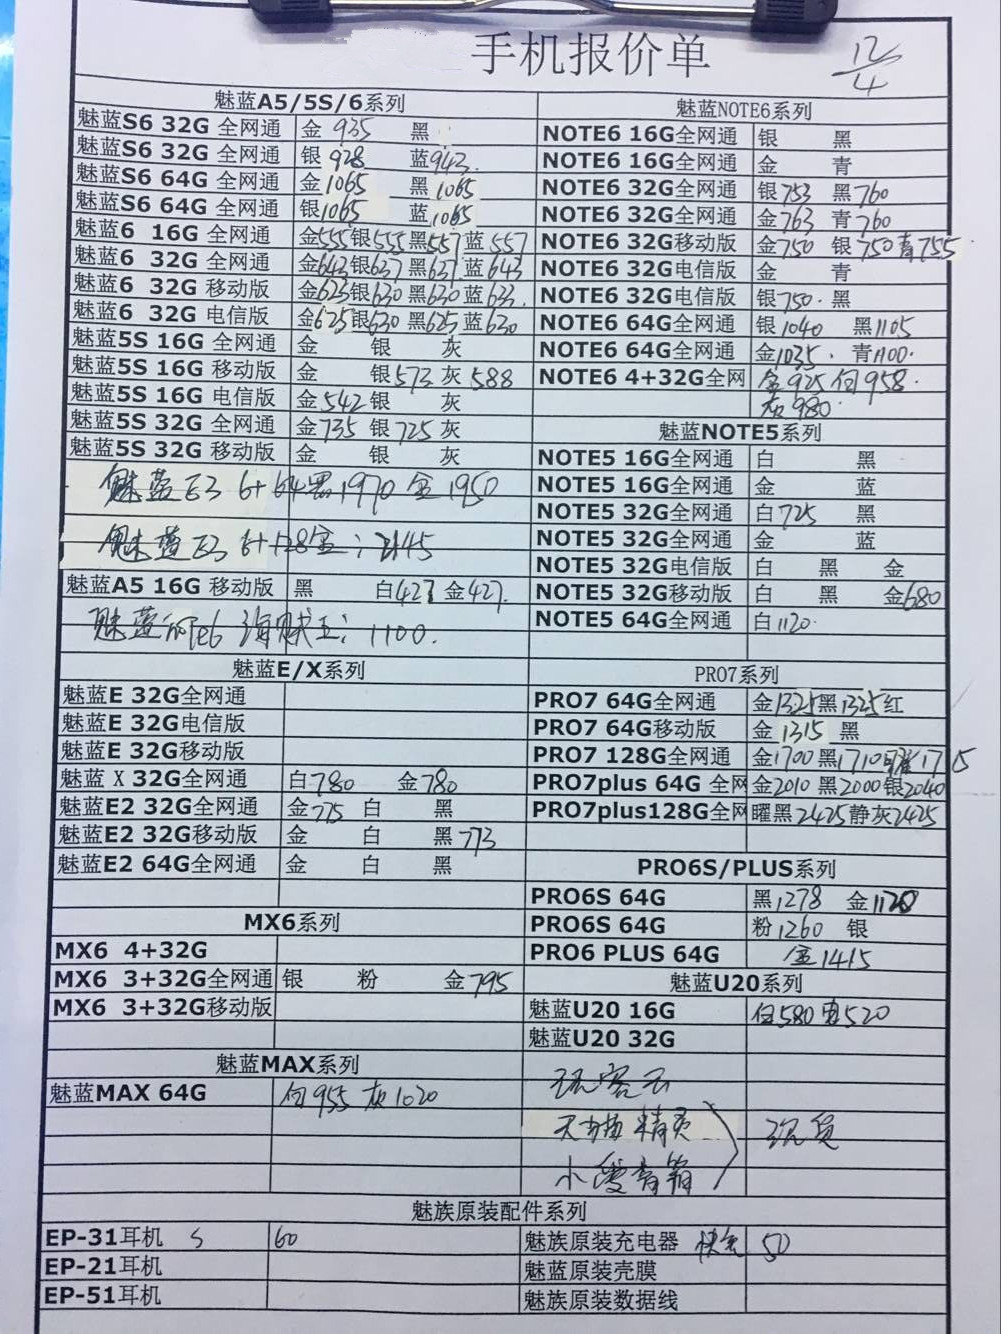 手机报价单
12/4
魅蓝A5/5S/6系列
魅蓝S6 32G 全网通 金 935 黑
魅蓝S6 32G 全网通 银 928 蓝943.
魅蓝S6 64G 全网通 金1065 黑1065
魅蓝S6 64G 全网通 银1065 蓝1065
魅蓝6 16G 全网通 金555银555黑557蓝557
魅蓝6 32G 全网通 金643银637黑637蓝643
魅蓝6 32G 移动版 金623银630黑630蓝633.
魅蓝6 32G 电信版 金625银630黑625蓝630
魅蓝5S 16G 全网通 金 银 灰
魅蓝5S 16G 移动版 金 银573 灰588
魅蓝5S 16G 电信版 金542银 灰
魅蓝5S 32G 全网通 金735 银725灰
魅蓝5S 32G 移动版 金 银 灰
魅蓝E3 6+64黑1970 金1950
魅蓝E3 6+128金:2145
魅蓝A5 16G 移动版 黑 白427 金427.
魅蓝note6 海贼王:1100.
魅蓝E/X系列
魅蓝E 32G全网通
魅蓝E 32G电信版
魅蓝E 32G移动版
魅蓝 X 32G全网通 白780 金780
魅蓝E2 32G全网通 金775 白 黑
魅蓝E2 32G移动版 金 白 黑773
魅蓝E2 64G全网通 金 白 黑
MX6系列
MX6 4+32G
MX6 3+32G全网通 银 粉 金795
MX6 3+32G移动版
魅蓝MAX系列
魅蓝MAX 64G 白955 灰1020
魅蓝NOTE6系列
NOTE6 16G全网通 银 黑
NOTE6 16G全网通 金 青
NOTE6 32G全网通 银753 黑760
NOTE6 32G全网通 金763 青760
NOTE6 32G移动版 金750 银750青755
NOTE6 32G电信版 金 青
NOTE6 32G电信版 银750. 黑
NOTE6 64G全网通 银1040 黑1105
NOTE6 64G全网通 金1035. 青1100.
NOTE6 4+32G全网 金925 白958.
灰980.
魅蓝NOTE5系列
NOTE5 16G全网通 白 黑
NOTE5 16G全网通 金 蓝
NOTE5 32G全网通 白725 黑
NOTE5 32G全网通 金 蓝
NOTE5 32G电信版 白 黑 金
NOTE5 32G移动版 白 黑 金680
NOTE5 64G全网通 白1120.
PRO7系列
PRO7 64G全网通 金1325黑1325红
PRO7 64G移动版 金1315 黑
PRO7 128G全网通 金1700黑1710曜1715
PRO7plus 64G 全网 金2010 黑2000银2040
PRO7plus128G全网 曜黑2425静灰2425
PRO6S/PLUS系列
PRO6S 64G 黑1278 金1120
PRO6S 64G 粉1260 银
PRO6 PLUS 64G 金1415
魅蓝U20系列
魅蓝U20 16G 白580 520
魅蓝U20 32G
玩客云
天猫精灵 现货
小爱音箱
魅族原装配件系列
EP-31耳机 S 60
EP-21耳机
EP-51耳机
魅族原装充电器 快充 50
魅蓝原装壳膜
魅族原装数据线